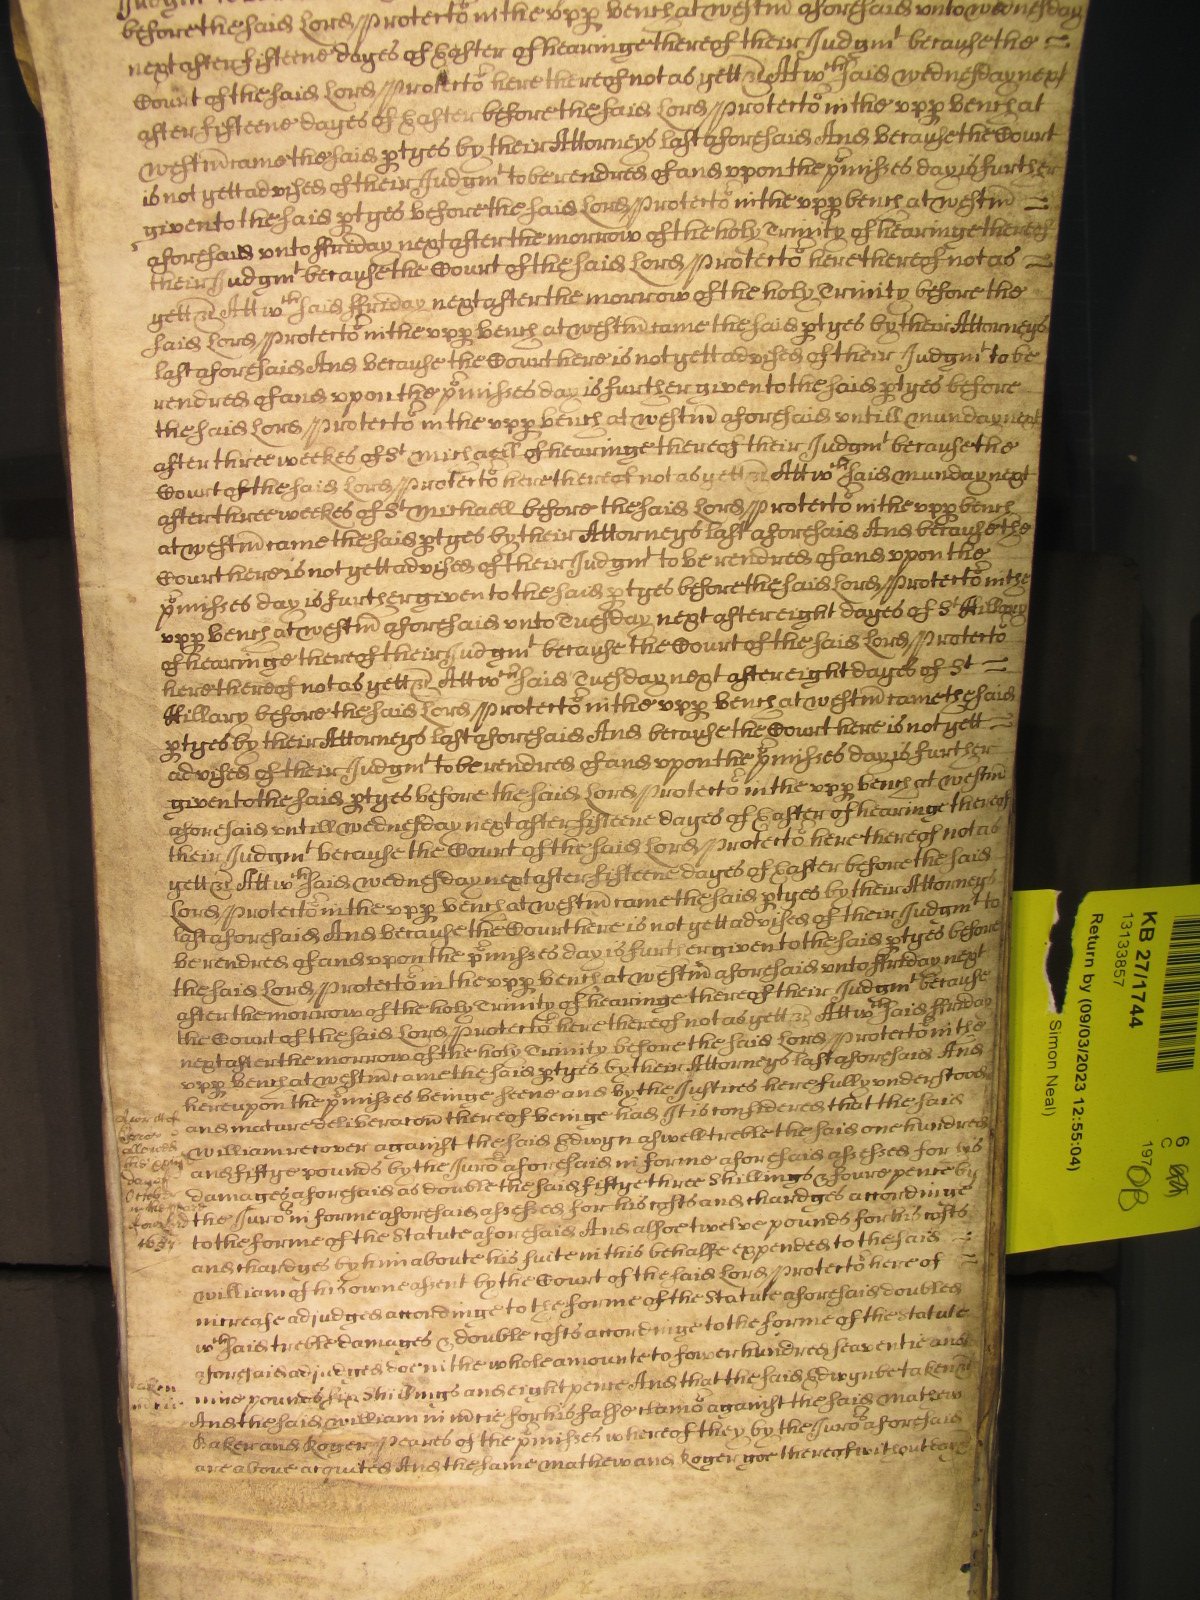 before the said Lord Protector in the upp bench at westm aforesaid unto wednesday
next after fifteene dayes of Easter of hearinge thereof their Judgmt because the
Court of the said Lord Protector here thereof not as yett &c Att wch said wednesday next
after fifteene dayes of Easter before the said Lord Protector in the upp bench at
westm came the said ptyes by their Attorneys last aforesaid And because the Court
is not yett advised of their Judgmt to be rendred of and upon the pmisses day is further
given to the said ptyes before the said Lord Protector in the upp bench at westm
aforesaid unto ffriday next after the morrow of the holy Trinity of hearinge thereof
their Judgmt because the Court of the said Lord Protector here thereof not as
yett &c Att wch said ffriday next after the morrow of the holy Trinity before the
said Lord Protector in the upp bench at westm came the said ptyes by their Attorneys
last aforesaid And because the Court here is not yett advised of their Judgmt to be
rendred of and upon the pmisses day is further given to the said ptyes before
the said Lord Protector in the upp bench at westm aforesaid untill munday next
after three weekes of St Michaell of hearinge thereof their Judgmt because the
Court of the said Lord Protector here thereof not as yett &c Att wch said munday next
after three weekes of St Michaell before the said Lord Protector in the upp bench
at westm came the said ptyes by their Attorneys last aforesaid And because the
Court here is not yett advised of their Judgmt to be rendred of and upon the
pmisses day is further given to the said ptyes before the said Lord Protector in the
upp bench at westm aforesaid unto Tuesday next after eight dayes of St Hillary
of hearinge thereof their Judgmt because the Court of the said Lord Protector
here thereof not as yett &c Att wch said Tuesday next after eight dayes of St
Hillary before the said Lord Protector in the upp bench at westm came the said
ptyes by their Attorneys last aforesaid And because the Court here is not yett
advised of their Judgmt to be rendred of and upon the pmisses day is further
given to the said ptyes before the said Lord Protector in the upp bench at westm
aforesaid untill wednesday next after fifteene dayes of Easter of hearinge thereof
their Judgmt because the Court of the said Lord Protector here thereof not as
yett &c Att wch said wednesday next after fifteene dayes of Easter before the said
Lord Protector in the upp bench at westm came the said ptyes by their Attorneys
last aforesaid And because the Court here is not yett advised of their Judgmt to
be rendred of and upon the pmisses day is further given to the said ptyes before
the said Lord Protector in the upp bench at westm aforesaid unto ffriday next
after the morrow of the holy Trinity of hearinge thereof their Judgmt because
the Court of the said Lord Protector here thereof not as yett &c Att wch said ffriday
next after the morrow of the holy Trinity before the said Lord Protector in the
upp bench at westm came the said ptyes by their Attorneys last aforesaid And
hereupon the pmisses beinge seene and by the Justices here fully understood
and mature deliberacon thereof beinge had It is considered that the said
William recover against the said Edwyn aswell treble the said one hundred
and fiftye pounds by the Juro aforesaid in forme aforesaid assessed for his
damages aforesaid as double the said fiftye three shillings & foure pence by
the Juro in forme aforesaid assessed for his costs and chardges accordinge
to the forme of the Statute aforesaid And alsoe twelve pounds for his costs
and chardges by him aboute his suite in this behalfe expended to the said
William of his owne assent by the Court of the said Lord Protector here of
increase adjudged accordinge to the forme of the Statute aforesaid doubled
wch said treble damages & double costs accordinge to the forme of the Statute
aforesaid adjudged doe in the whole amounte to fower hundred seaventie and
nine pounds six shillings and eight pence And that the said Edwyn be taken &c
And the said William in mcie for his false clamo against the said Mathew
Baker and Roger Peares of the pmisses whereof they by the Juro aforesaid
are above acquited And the same Mathew and Roger goe thereof without day
A writt of
allowed
this
day of
Octob
in the
1657
taken
KB 27/1744
13133857
Return by (09/03/2023 12:55:04)
Simon Neal)
6
C
197